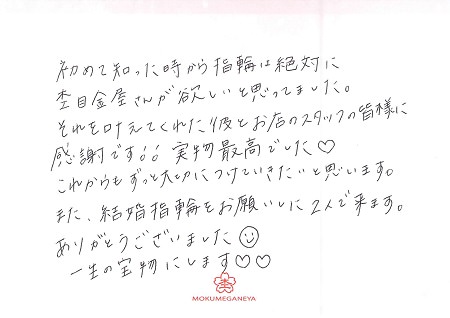 初めて知った時から指輪は絶対に
杢目金屋さんが欲しいと思ってました。
それを叶えてくれた彼とお店のスタッフの皆様に
感謝です!! 実物最高でした♡
これからもずっと大切につけていきたいと思います。
また、結婚指輪をお願いしに2人で来ます。
ありがとうございました☺
一生の宝物にします♡♡
杢
MOKUMEGANEYA